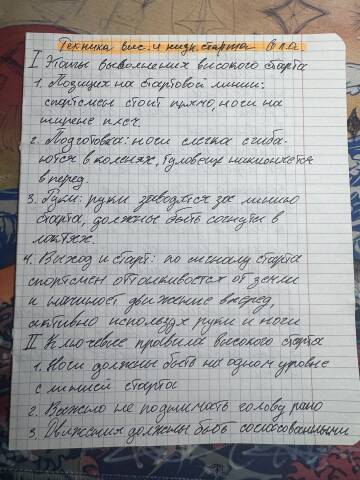 Техника выс. и низк. старта в л.а.
I Этапы выполнения высокого старта
1. Позиция на стартовой линии:
спортсмен стоит прямо, ноги на
ширене плеч.
2. Подготовка: ноги слегка сгиба-
ются в коленях, туловище наклоняется
вперед.
3. Руки: руки заводятся за линию
старта, должны быть согнуты в
локтях.
4. Выход и старт: по сигналу старта
спортсмен отталкивается от земли
и начинает движение вперед,
активно используя руки и ноги
II Ключевые правила высокого старта
1. Ноги должны быть на одном уровне
с линией старта
2. Важно не поднимать голову рано
3. Движения должны быть согласованными